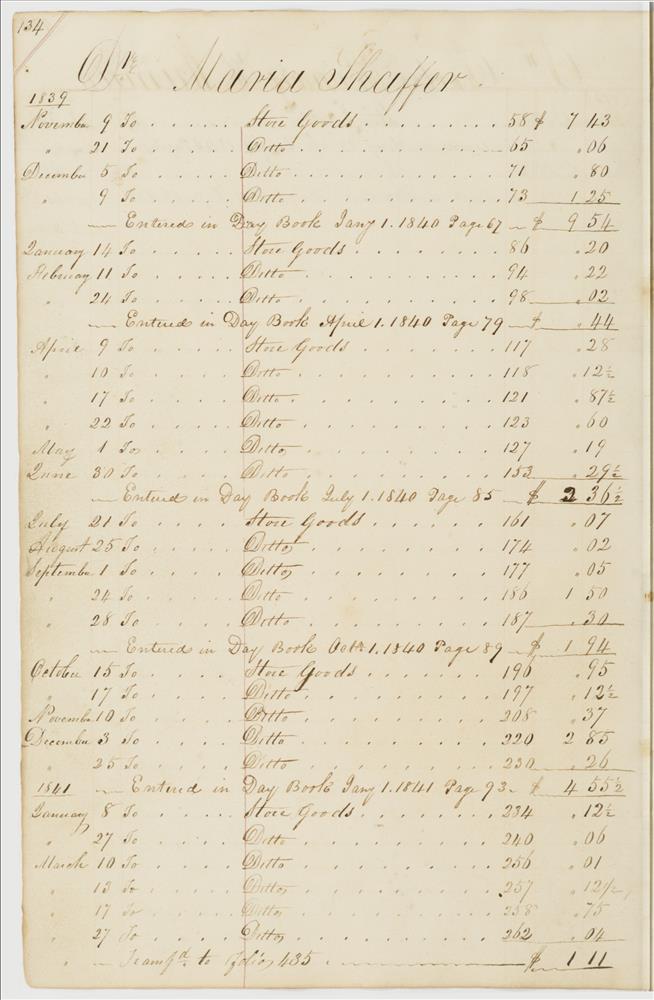 134
Dr. Maria Shaffer
1839
November 9 To . . . . . . Store Goods . . . . . . . . 58 $ 7 43
" 21 To . . . . . Ditto . . . . . . . . . . 65 . 06
December 5 To . . . . . Ditto . . . . . . . . . . 71 . 80
" 9 To . . . . . Ditto . . . . . . . . . . 73 1 25
— Entered in Day Book Jany 1. 1840 Page 67 — $ 9 54
January 14 To . . . . . Store Goods . . . . . . . . 86 . 20
February 11 To . . . . . Ditto . . . . . . . . . . 94 . 22
" 24 To . . . . . Ditto . . . . . . . . . . 98 . 02
— Entered in Day Book April 1. 1840 Page 79 — $ . 44
April 9 To . . . . . Store Goods . . . . . . . 117 . 28
" 10 To . . . . . Ditto . . . . . . . . . . 118 . 12½
" 17 To . . . . . Ditto . . . . . . . . . . 121 . 87½
" 22 To . . . . . Ditto . . . . . . . . . . 123 . 60
May 1 To . . . . . Ditto . . . . . . . . . . 127 . 19
June 30 To . . . . . Ditto . . . . . . . . . . 153 . 29½
— Entered in Day Book July 1. 1840 Page 85 — $ 2 36½
July 21 To . . . . . Store Goods . . . . . . 161 . 07
August 25 To . . . . . Ditto . . . . . . . . . 174 . 02
September 1 To . . . . . Ditto . . . . . . . . . 177 . 05
" 24 To . . . . . Ditto . . . . . . . . . 186 1 50
" 28 To . . . . . Ditto . . . . . . . . . 187 . 30
— Entered in Day Book Octr 1. 1840 Page 89 — $ 1 94
October 15 To . . . . . Store Goods . . . . . . 196 . 95
" 17 To . . . . . Ditto . . . . . . . . . 197 . 12½
November 10 To . . . . . Ditto . . . . . . . . . 208 . 37
December 3 To . . . . . Ditto . . . . . . . . . 220 2 85
" 25 To . . . . . Ditto . . . . . . . . . 230 . 26
1841 — Entered in Day Book Jany 1. 1841 Page 93 - $ 4 55½
January 8 To . . . . . Store Goods . . . . . . . 234 . 12½
" 27 To . . . . . Ditto . . . . . . . . . 240 . 06
March 10 To . . . . . Ditto . . . . . . . . . 256 . 01
" 13 To . . . . . Ditto . . . . . . . . . 257 . 12½
" 17 To . . . . . Ditto . . . . . . . . . 258 . 75
" 27 To . . . . . Ditto . . . . . . . . . 262 . 04
" — Transfd. to folio 435 . — $ 1 11